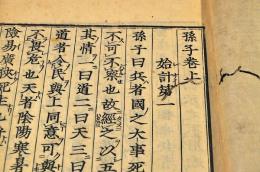 孫子卷上
始計第一
孫子曰兵者國之大事死
不可不察也故經之以五
其情一曰道二曰天三曰
道者令民與上同意可與
不畏危也天者陰陽寒暑
險易廣狹死生也